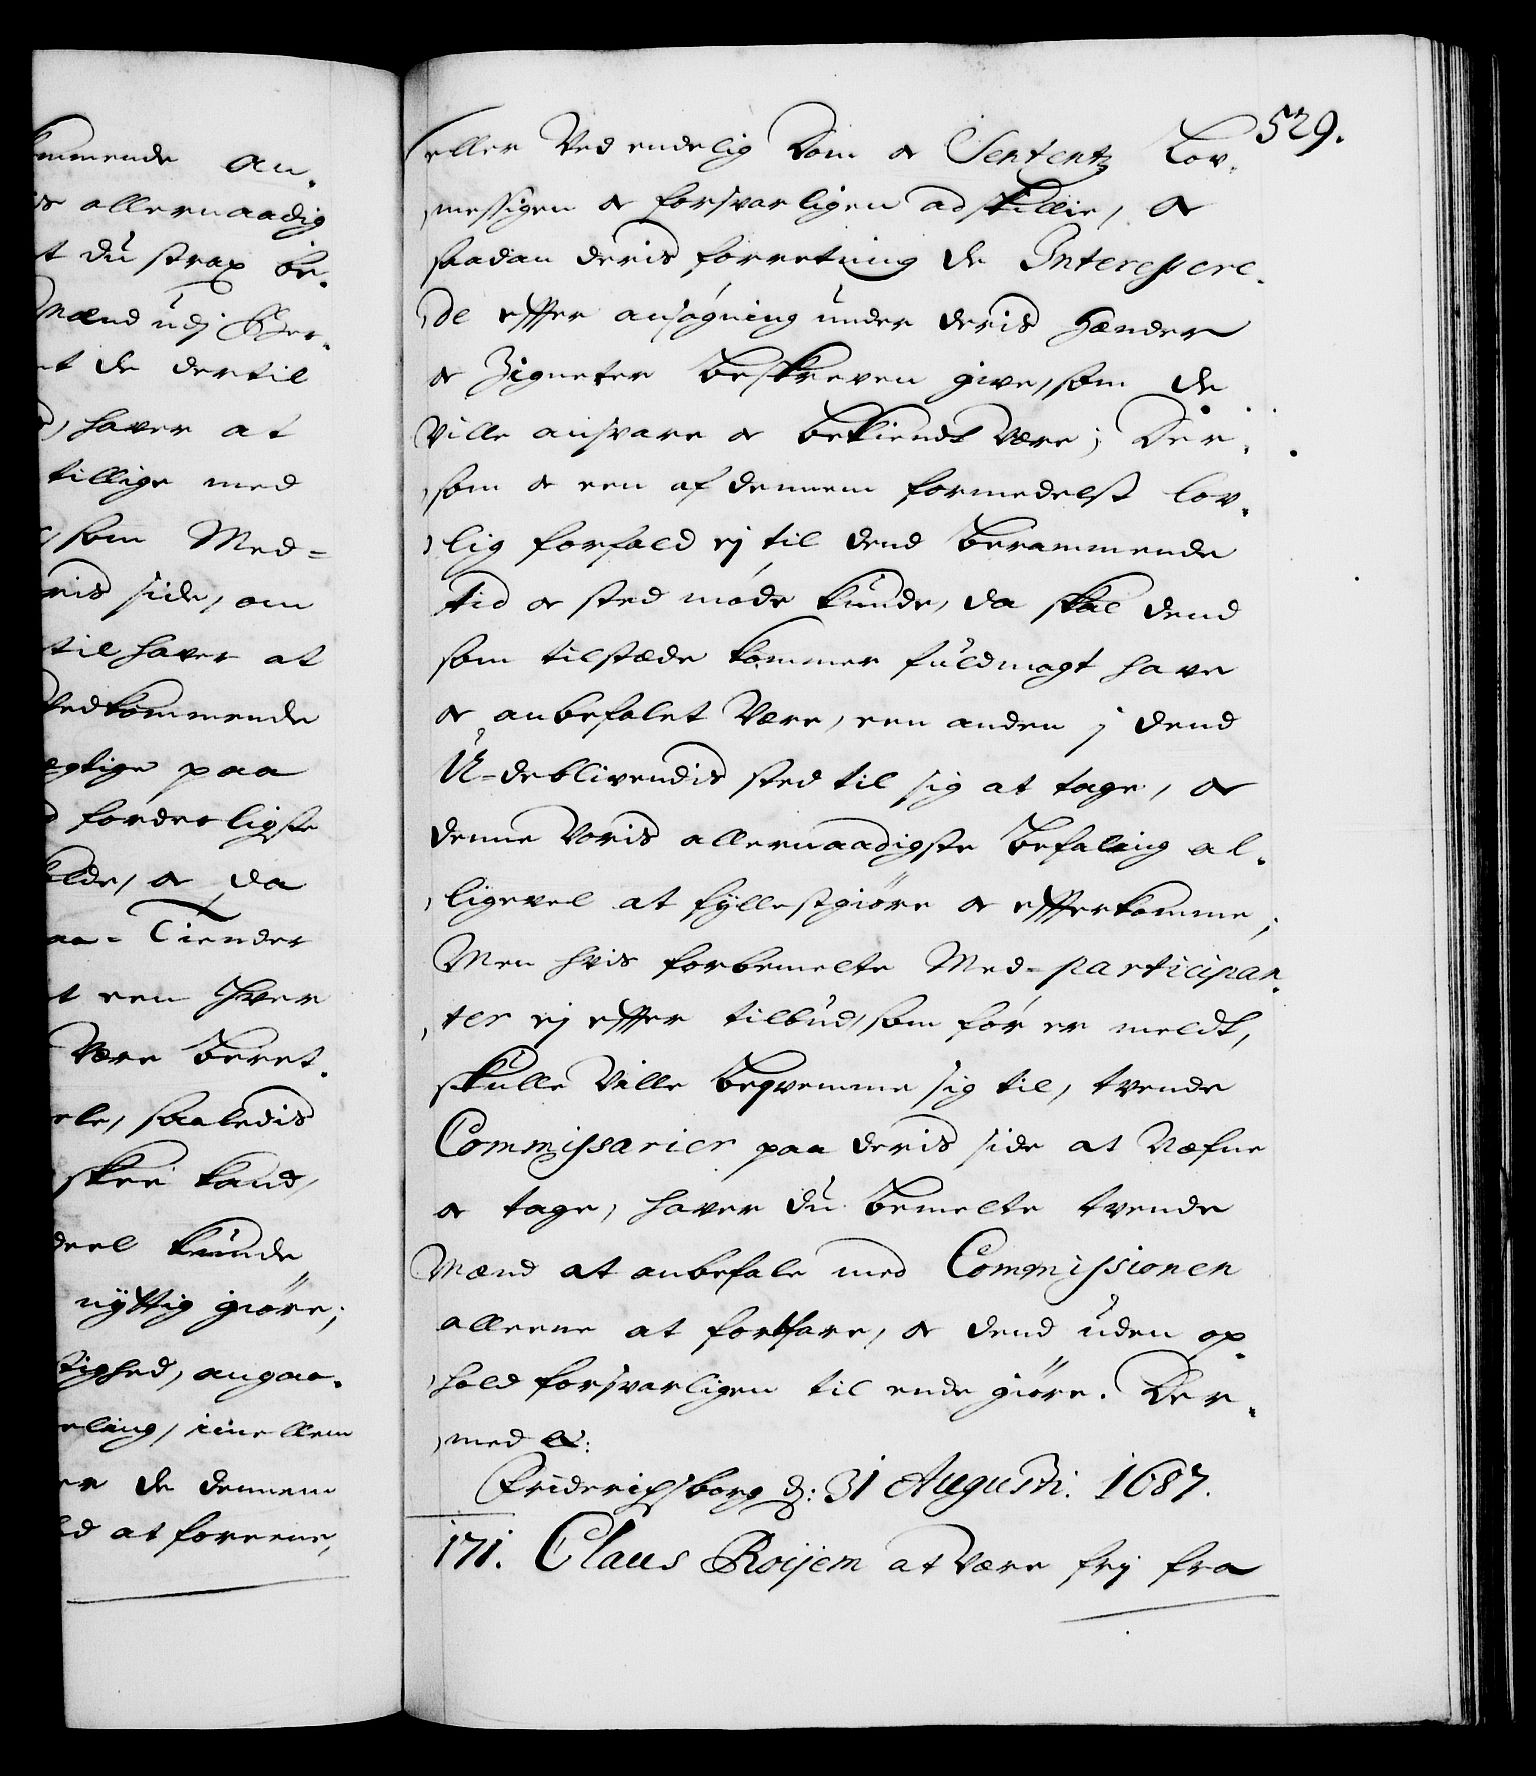 ommende an-
is allernaadig
t du strax be-
Mænd udj Ber-
nt de dertil
haver at
tillige med
som Med=
ris side, om
til haver at
Vedkommende
egtige paa
forderligste
elde, & da
Tiender
t een hver
Være beret-
ele, saaledis
skee kand,
deel kunde
nyttig giøre;
tighed, angaa-
eling, imellem
er de dennem
ld at foreene,
529.
eller Ved endelig Dom & Sententz Lov-
messigen & forsvarligen adskillie, &
saadan deris forretning de Interessere-
de effter ansøgning under deris Hænder
& Zigneter beskreven give, som de
Ville ansvare & bekiendt være; Der-
som & een af dennem formedelst lov-
lig forfald ej til dend berammende
tid & sted møde kunde, da skal dend
som tilstæde kommer fuldmagt have
& anbefalet Være, een anden j dend
U-deblivendis sted til sig at tage, &
denne Voris allernaadigste Befaling al-
ligevel at fyllestgiøre & effterkomme;
Men hvis forbemelte Med-participan-
ter ej effter tilbud, som før er meldt,
skulle Ville beqvemme sig til, tvende
Commissarier paa deris side at Næfne
& tage, haver du bemelte tvende
Mænd at anbefale med Commissionen
alleene at fortfare, & dend uden op-
hold forsvarligen til ende giøre. Der-
med &:
Friderichsborg d: 31 Augusti. 1687.
171. Claus Roijem at være frj fra